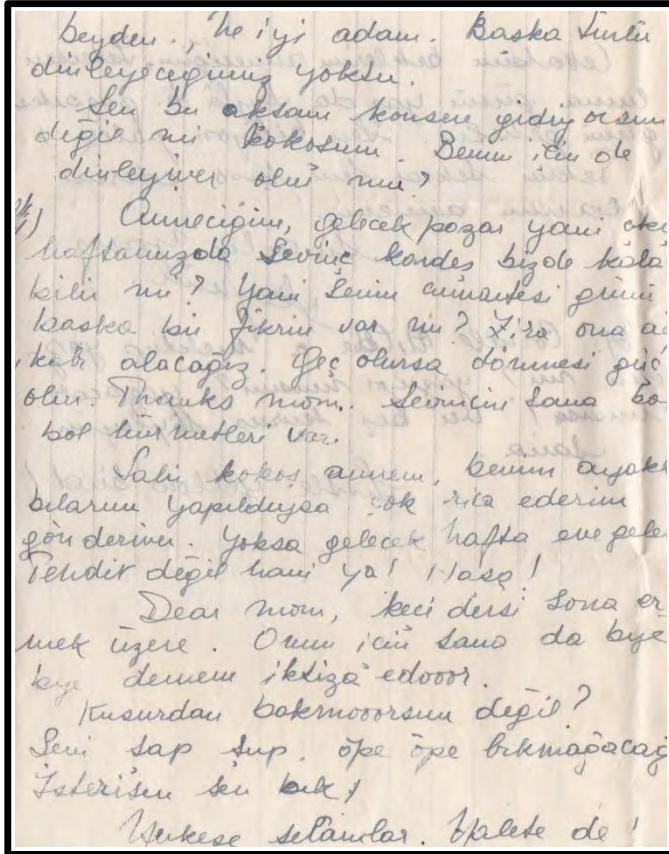 beyden., ne iyi adam. Başka türlü
dinleyeceğimiz yoksu.
Sen bu akşam konsere gidiyorsun
değil mi kokosum. Benim için de
dinleyiver olur mu?
Anneciğim, gelecek pazar yani
haftamızda Sevinç kardeş bizde kala
bilir mi? Yani senin cumartesi günü
başka bir fikrin var mı? Zira ona
alacağız. Geç olursa dönmesi güç
olur. Thanks mom. Sevincin sana bo
bol hürmetleri var.
Sahi kokoş annem, benim ayakk
bılarım yapıldıysa çok rica ederim
gönderin. Yoksa gelecek hafta eve gele
Tehdit değil hani ya! Haşa!
Dear mom, keci dersi sona er-
mek üzere. Onun için sana da bye
bye demem iktiza edooor.
Kusurdan bakmooorsun değil?
Seni şap şup. öpe öpe bıkmağacağ
İsterisen sen bık!
Herkese selamlar. Halete de!